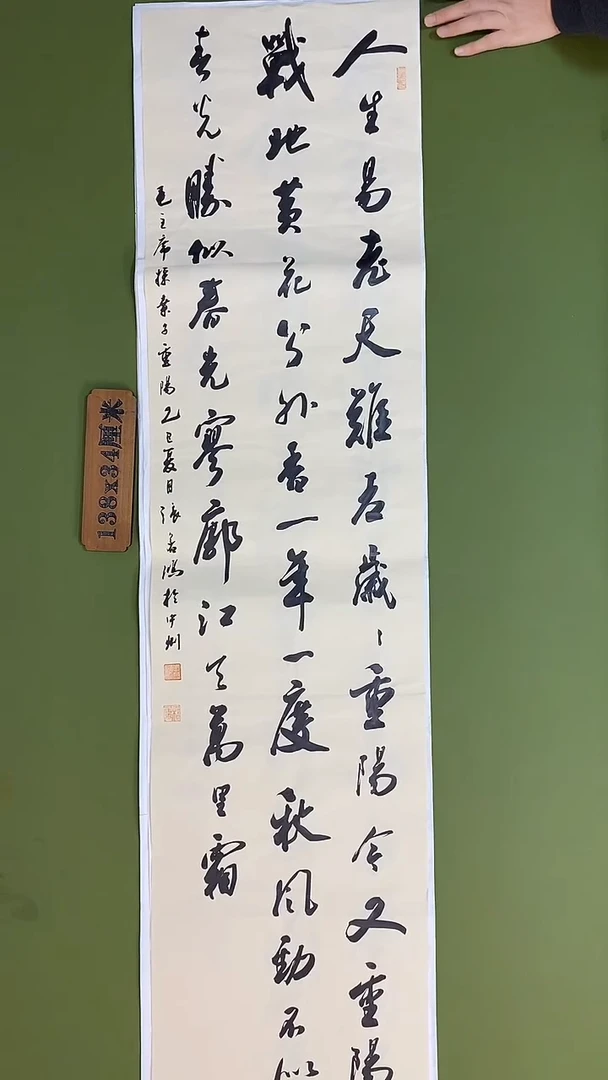 人生易老天難老歲〻重陽今又重陽
戰地黃花分外香一年一度秋風勁不似
春光勝似春光寥廓江天萬里霜
毛主席採桑子重陽乙巳夏日張於中州
138x34厘米